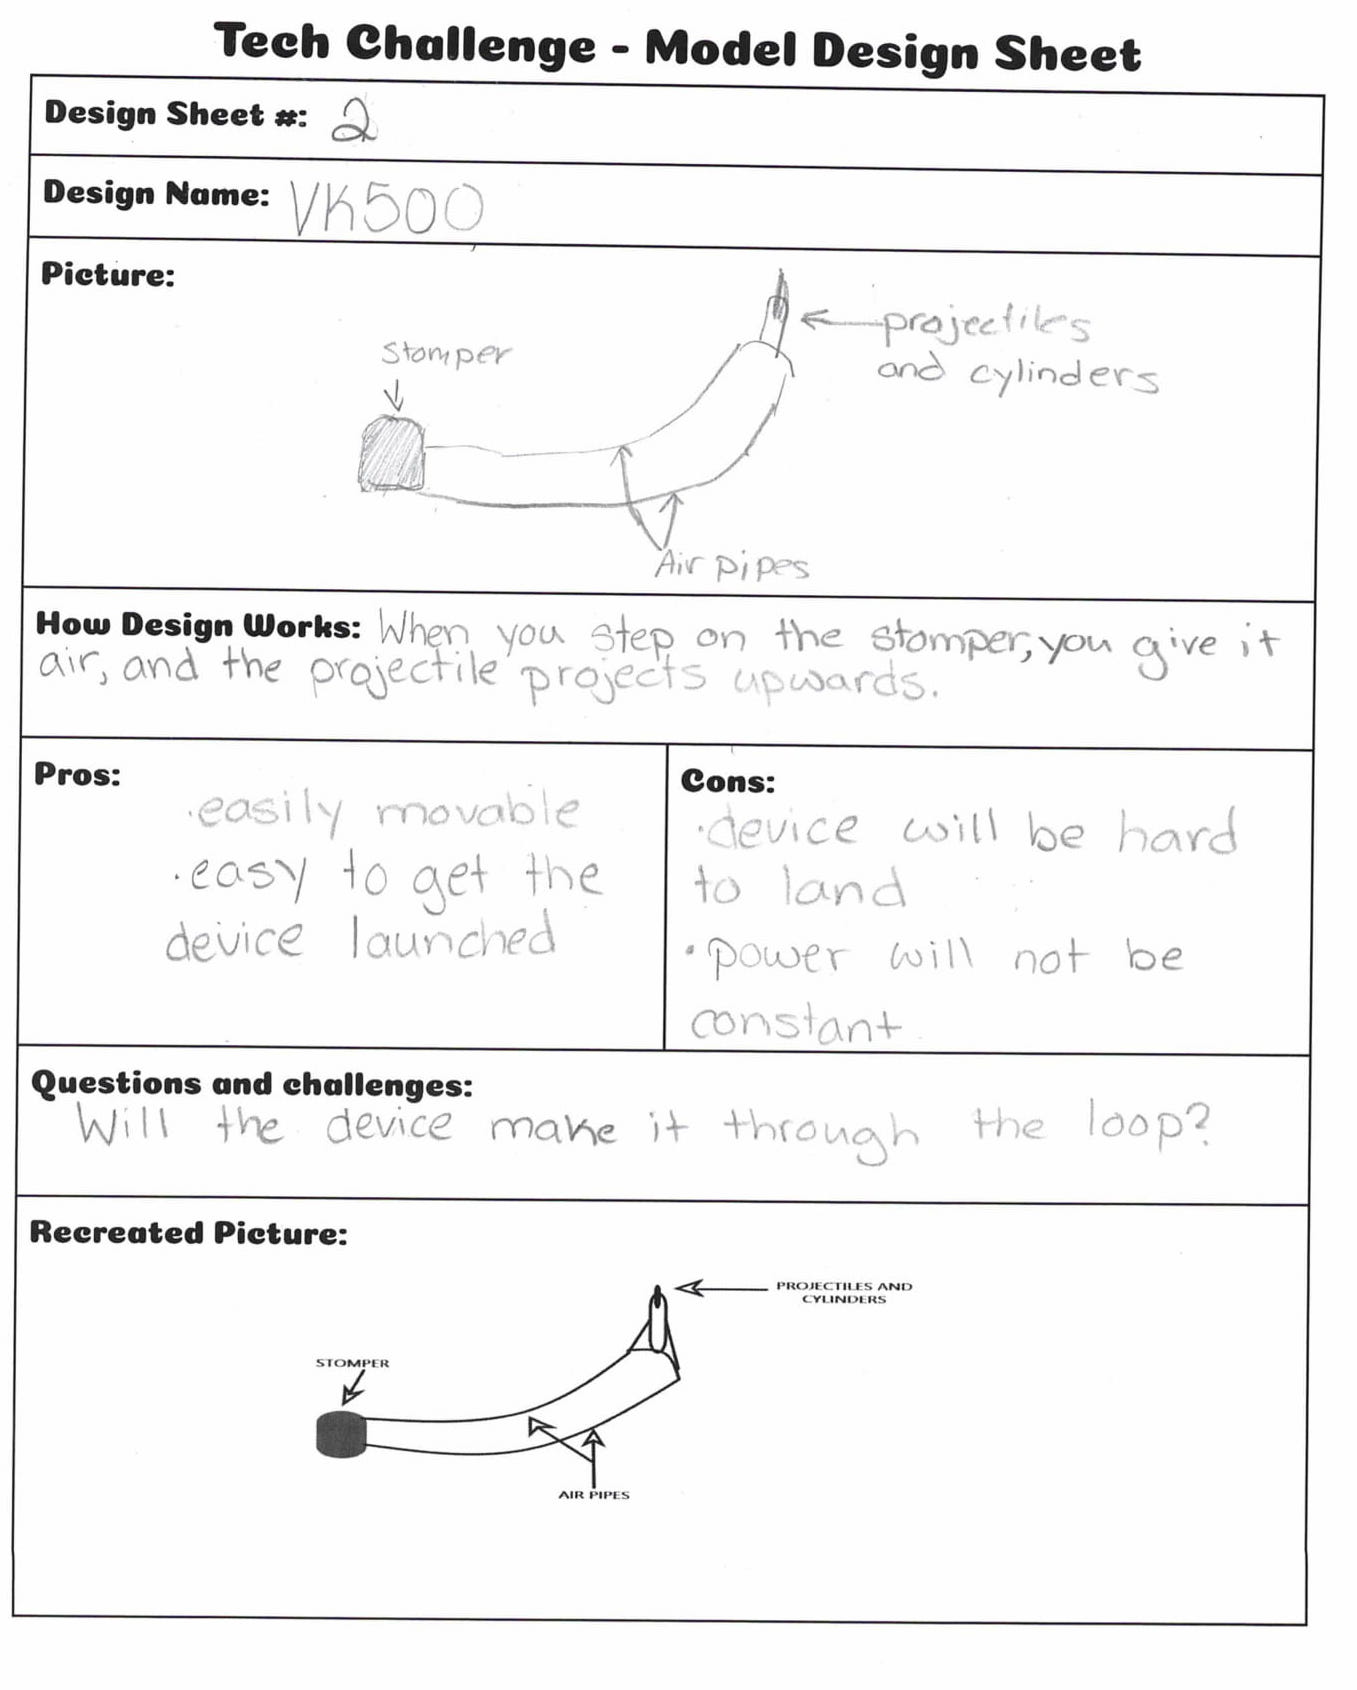 Tech Challenge - Model Design Sheet
Design Sheet #: 2
Design Name: VK500
Picture:
Stomper
projectiles
and cylinders
Air pipes
How Design Works: When you step on the stomper, you give it
air, and the projectile projects upwards.
Pros:
·easily movable
·easy to get the
device launched
Cons:
·device will be hard
to land
·power will not be
constant
Questions and challenges:
Will the device make it through the loop?
Recreated Picture:
PROJECTILES AND
CYLINDERS
STOMPER
AIR PIPES